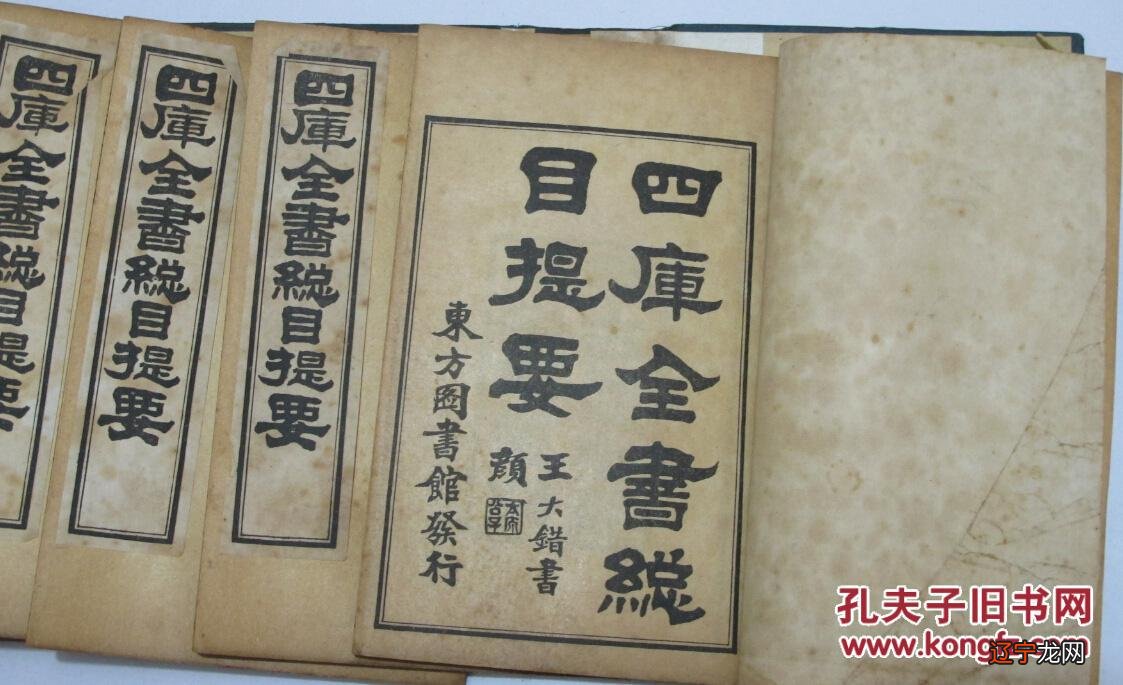 四庫全書総
目提要
王大錯書
顔
太原
公子
東方圖書館發行
四庫全書総目提要
四庫全書総目提要
四庫全書総目提要
孔夫子旧书网
www.kongfz.com
辽宁龙网